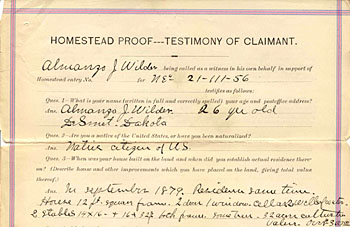 HOMESTEAD PROOF---TESTIMONY OF CLAIMANT.
Almanzo J Wilder being called as a witness in his own behalf in support of
Homestead entry No. for NE¼ 21-111-56
testifies as follows:
Ques. 1--What is your name (written in full and correctly spelled) your age and postoffice address?
Ans Almanzo J. Wilder 26 yr old
De Smet, Dakota
Ques. 2--Are you a native of the United States, or have you been naturalized?
Ans. Native citizen of US
Ques. 3--When was your house built on the land and when did you establish actual residence there-
on? (Describe house and other improvements which you have placed on the land, giving total
value thereof.)
Ans. In september 1879. Residence same time.
House 12 ft. square frame. 2 door 1 window. cellar
2 stables 14x16 + 16x32 frame